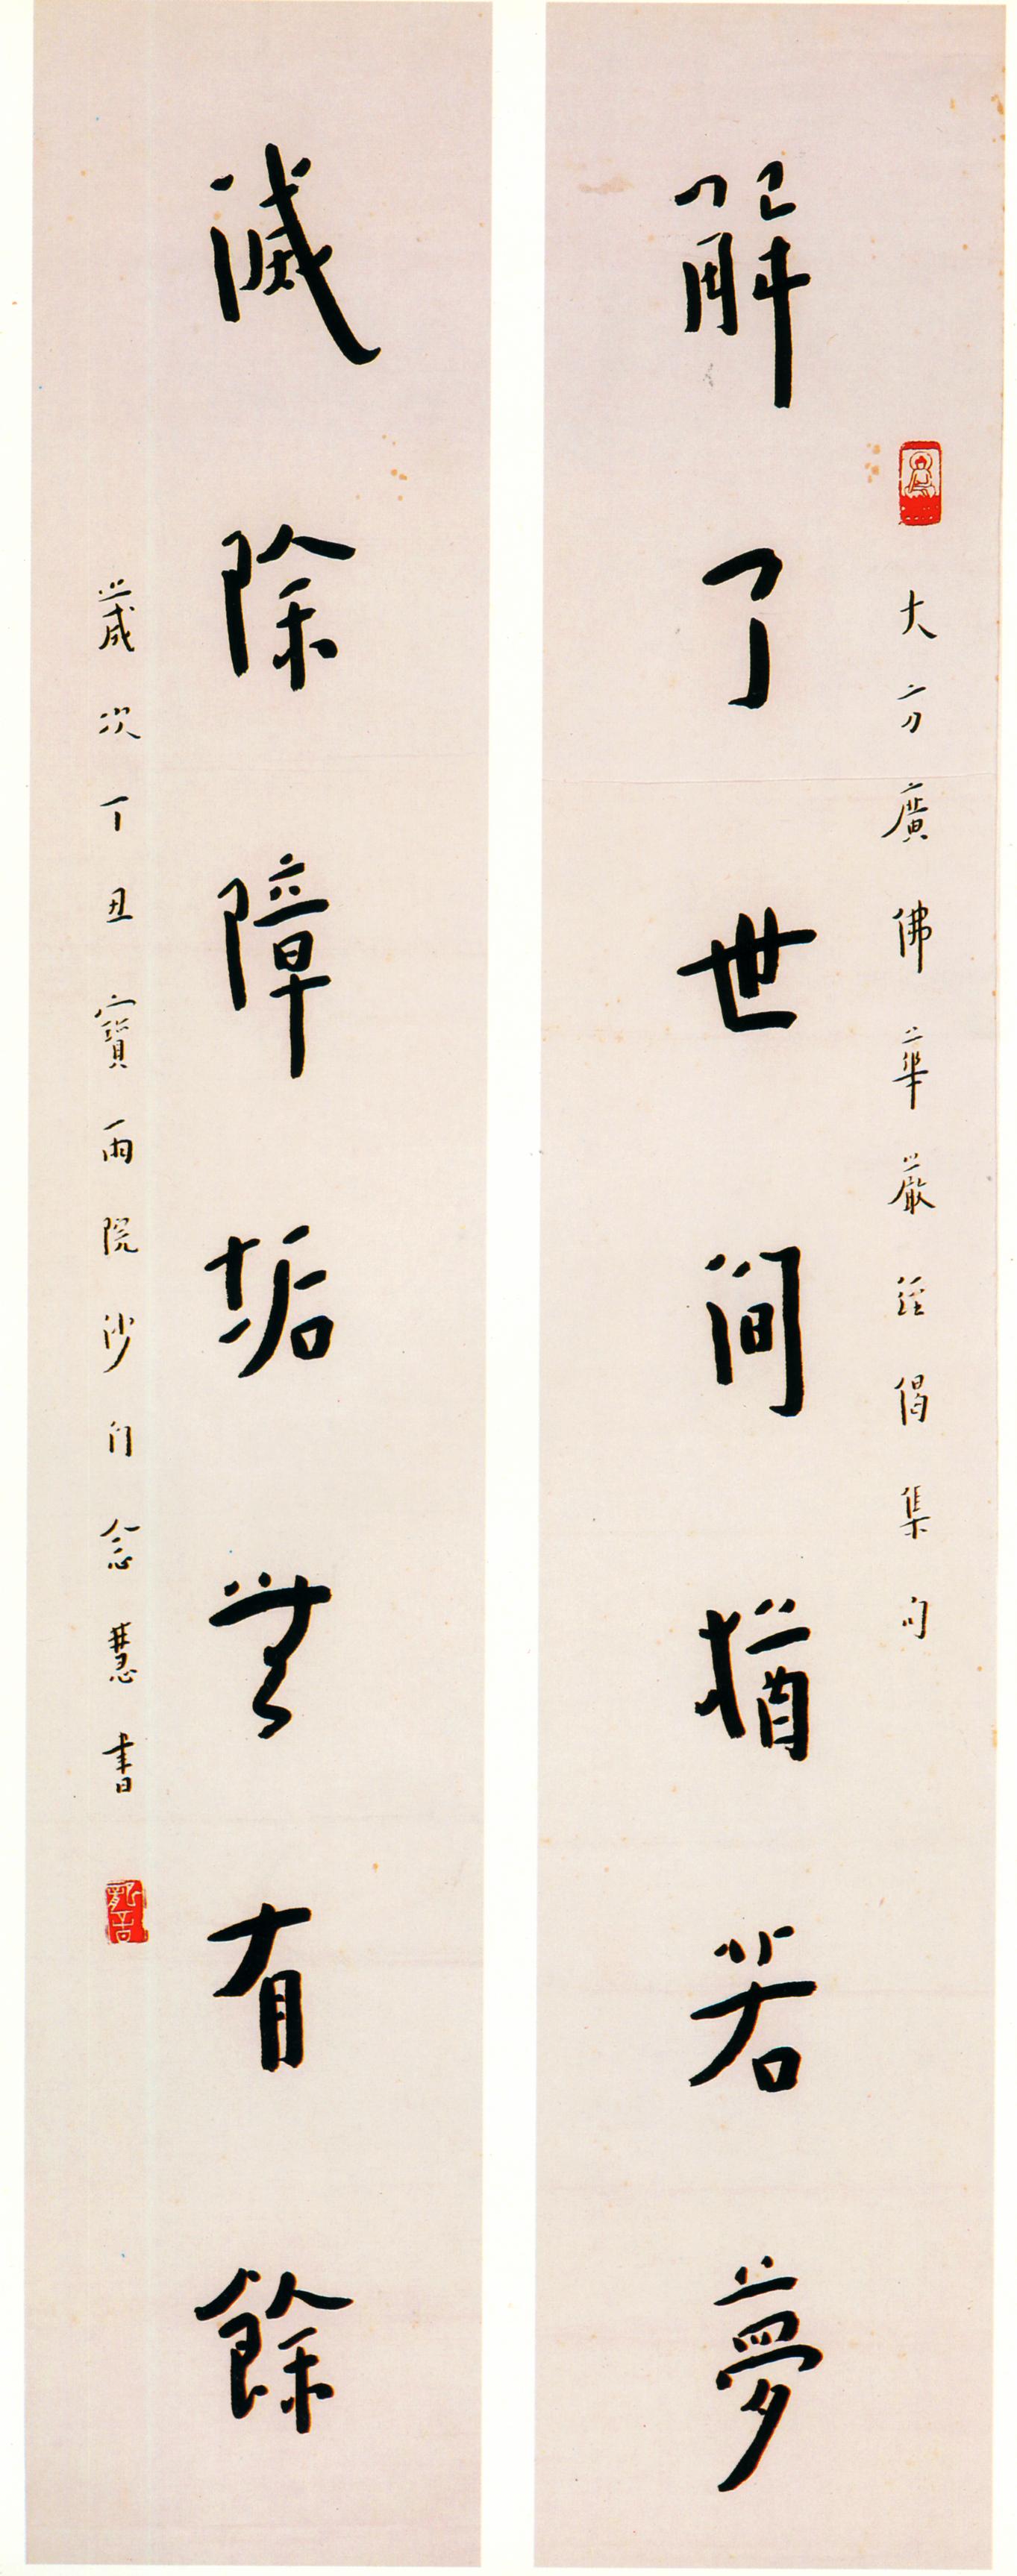 大方廣佛華嚴經偈集句
解了世間猶若夢
滅除障垢無有餘
歲次丁丑寶雨院沙门念慧書